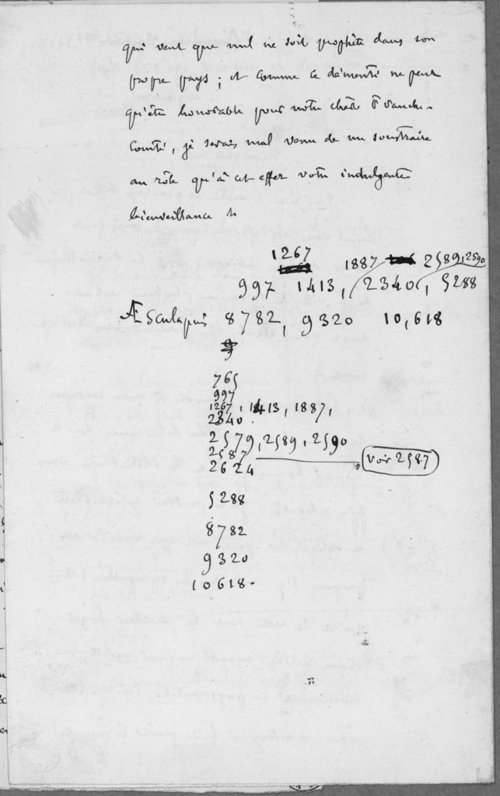 qui veut que nul ne soit prophète dans son
propre pays ; et comme ce démenti ne peut
qu'être honorable pour notre chère Franche-
Comté, je serais mal venu de me soustraire
au rôle qu'à cet effet votre indulgente
bienveillance
1267 1887 2589, 2590
997 1413, 2340, 5288
Æsculapius 8782, 9320 10,618
765
997
1267, 1413, 1887,
2340.
2579, 2589, 2590
2587
2624 voir 2587
5288
8782
9320
10618.